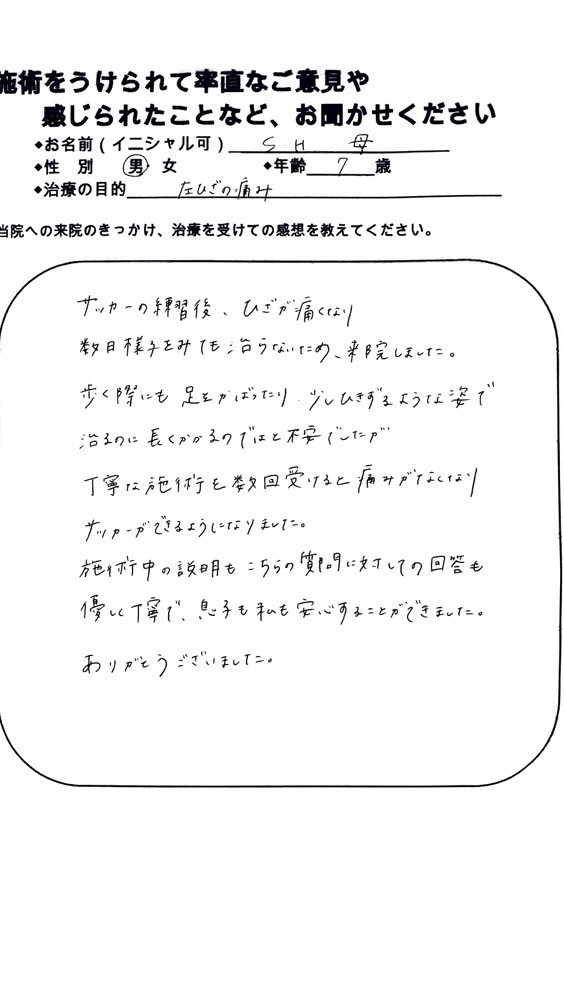 施術をうけられて率直なご意見や
感じられたことなど、お聞かせください
◆お名前(イニシャル可) S H 母
◆性 別 男・女 ◆年齢 7 歳
◆治療の目的 左ひざの痛み
当院への来院のきっかけ、治療を受けての感想を教えてください。
サッカーの練習後、ひざが痛くなり
数日様子をみても治らないため、来院しました。
歩く際にも足をかばったり、少しひきずるような姿で
治るのに長くかかるのではと不安でしたが
丁寧な施術を数回受けると痛みがなくなり
サッカーができるようになりました。
施術中の説明もこちらの質問に対しての回答も
優しく丁寧で、息子も私も安心することができました。
ありがとうございました。